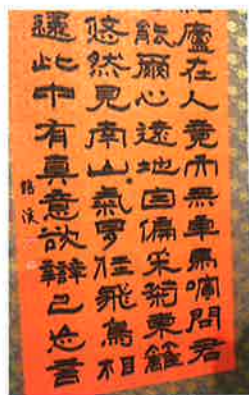 廬在人竟而無車馬喧問君
能爾心遠地自偏采菊東籬
悠然見南山氣日夕佳飛鳥相
還此中有真意欲辯已忘言